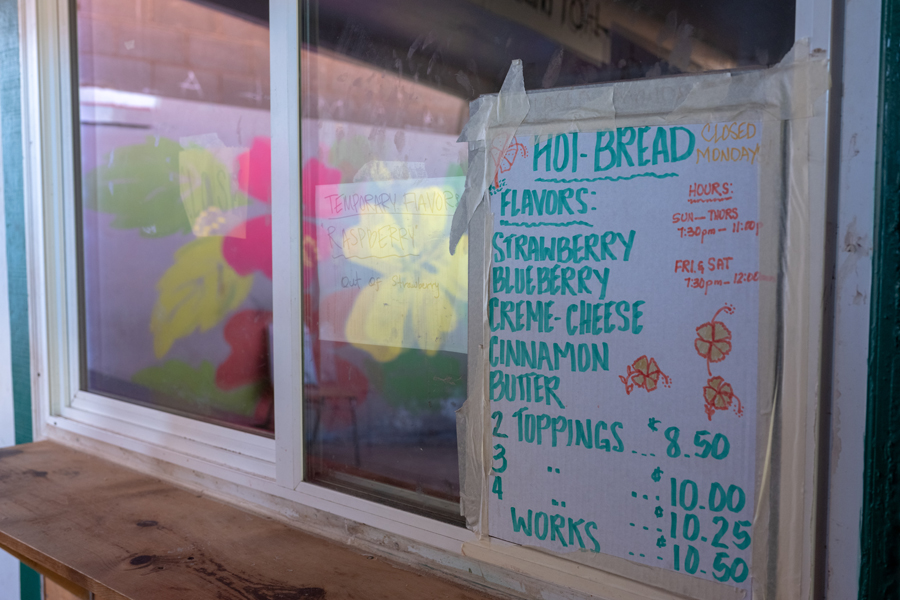 TEMPORARY FLAVORS
RASPBERRY
Out of strawberry
HOT-BREAD
CLOSED
MONDAY
FLAVORS:
STRAWBERRY
BLUEBERRY
CREME-CHEESE
CINNAMON
BUTTER
HOURS:
SUN-THURS
7:30pm-11:00p
FRI & SAT
7:30pm-12:00
2 TOPPINGS ... $8.50
3 " ... $10.00
4 " ... $10.25
WORKS ... $10.50